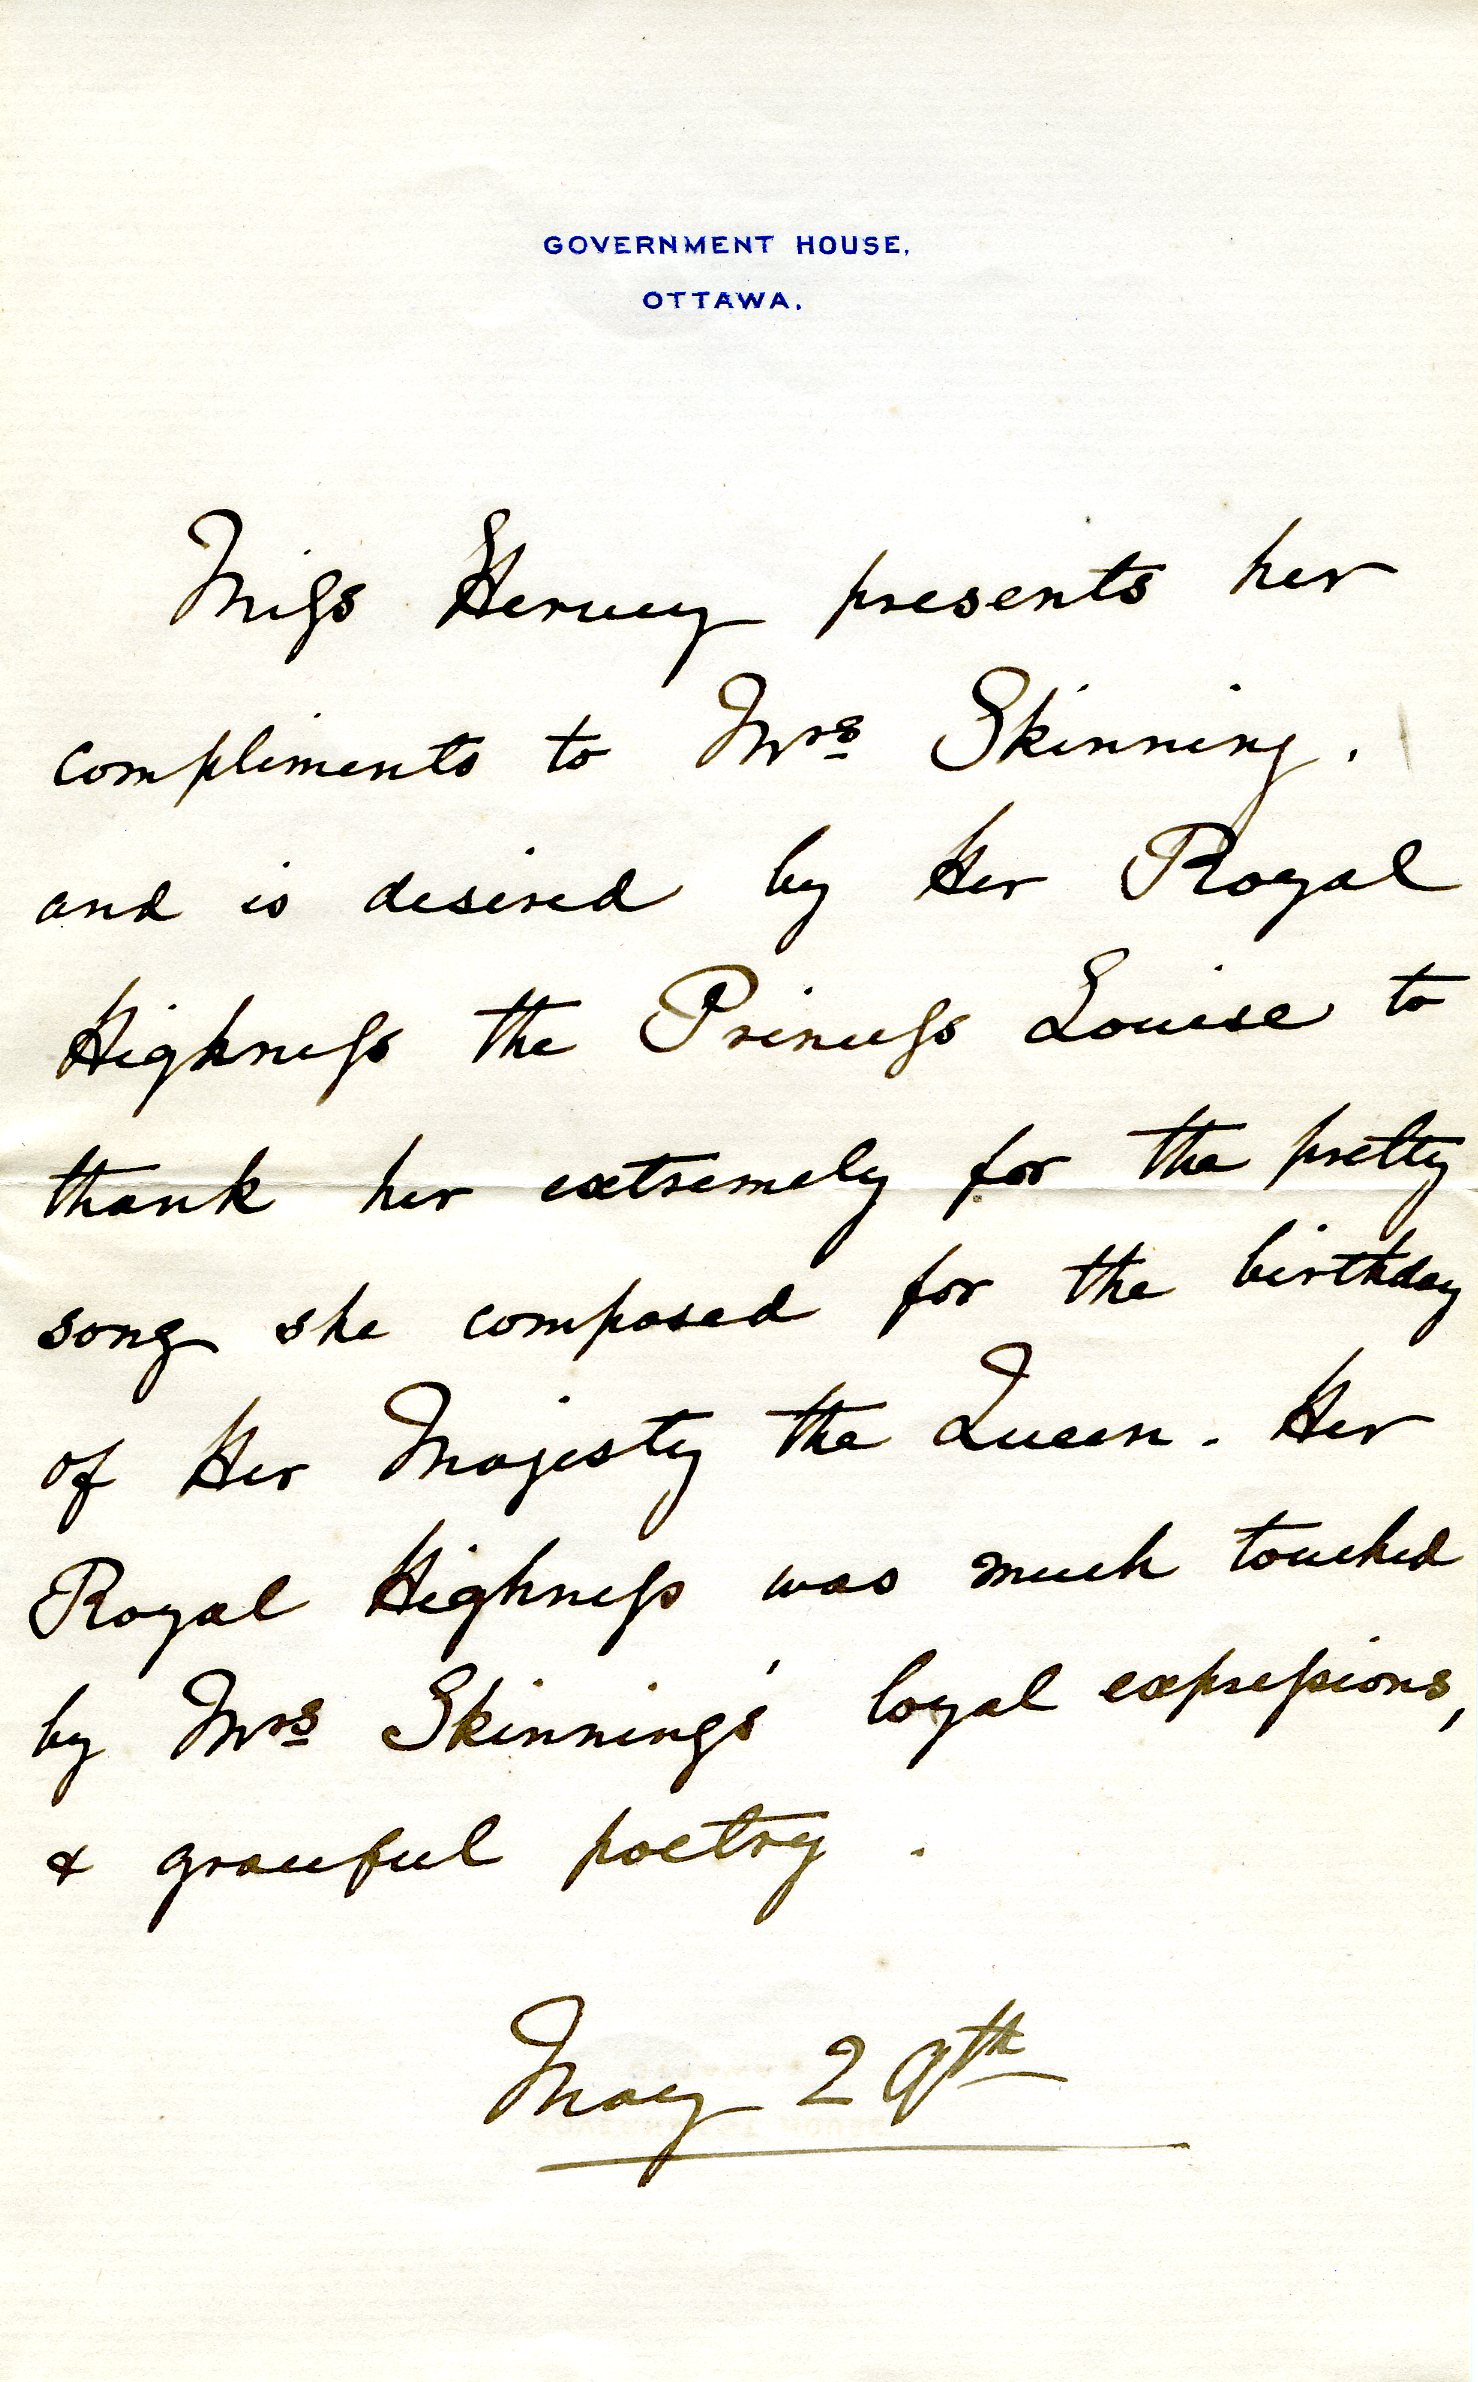 GOVERNMENT HOUSE,
OTTAWA.
Miss Hervey presents her
compliments to Mrs Skinning.
and is desired by Her Royal
Highness the Princess Louise to
thank her extremely for the pretty
song she composed for the birthday
of Her Majesty the Queen. Her
Royal Highness was much touched
by Mrs Skinning's loyal expressions,
& graceful poetry.
May 29th